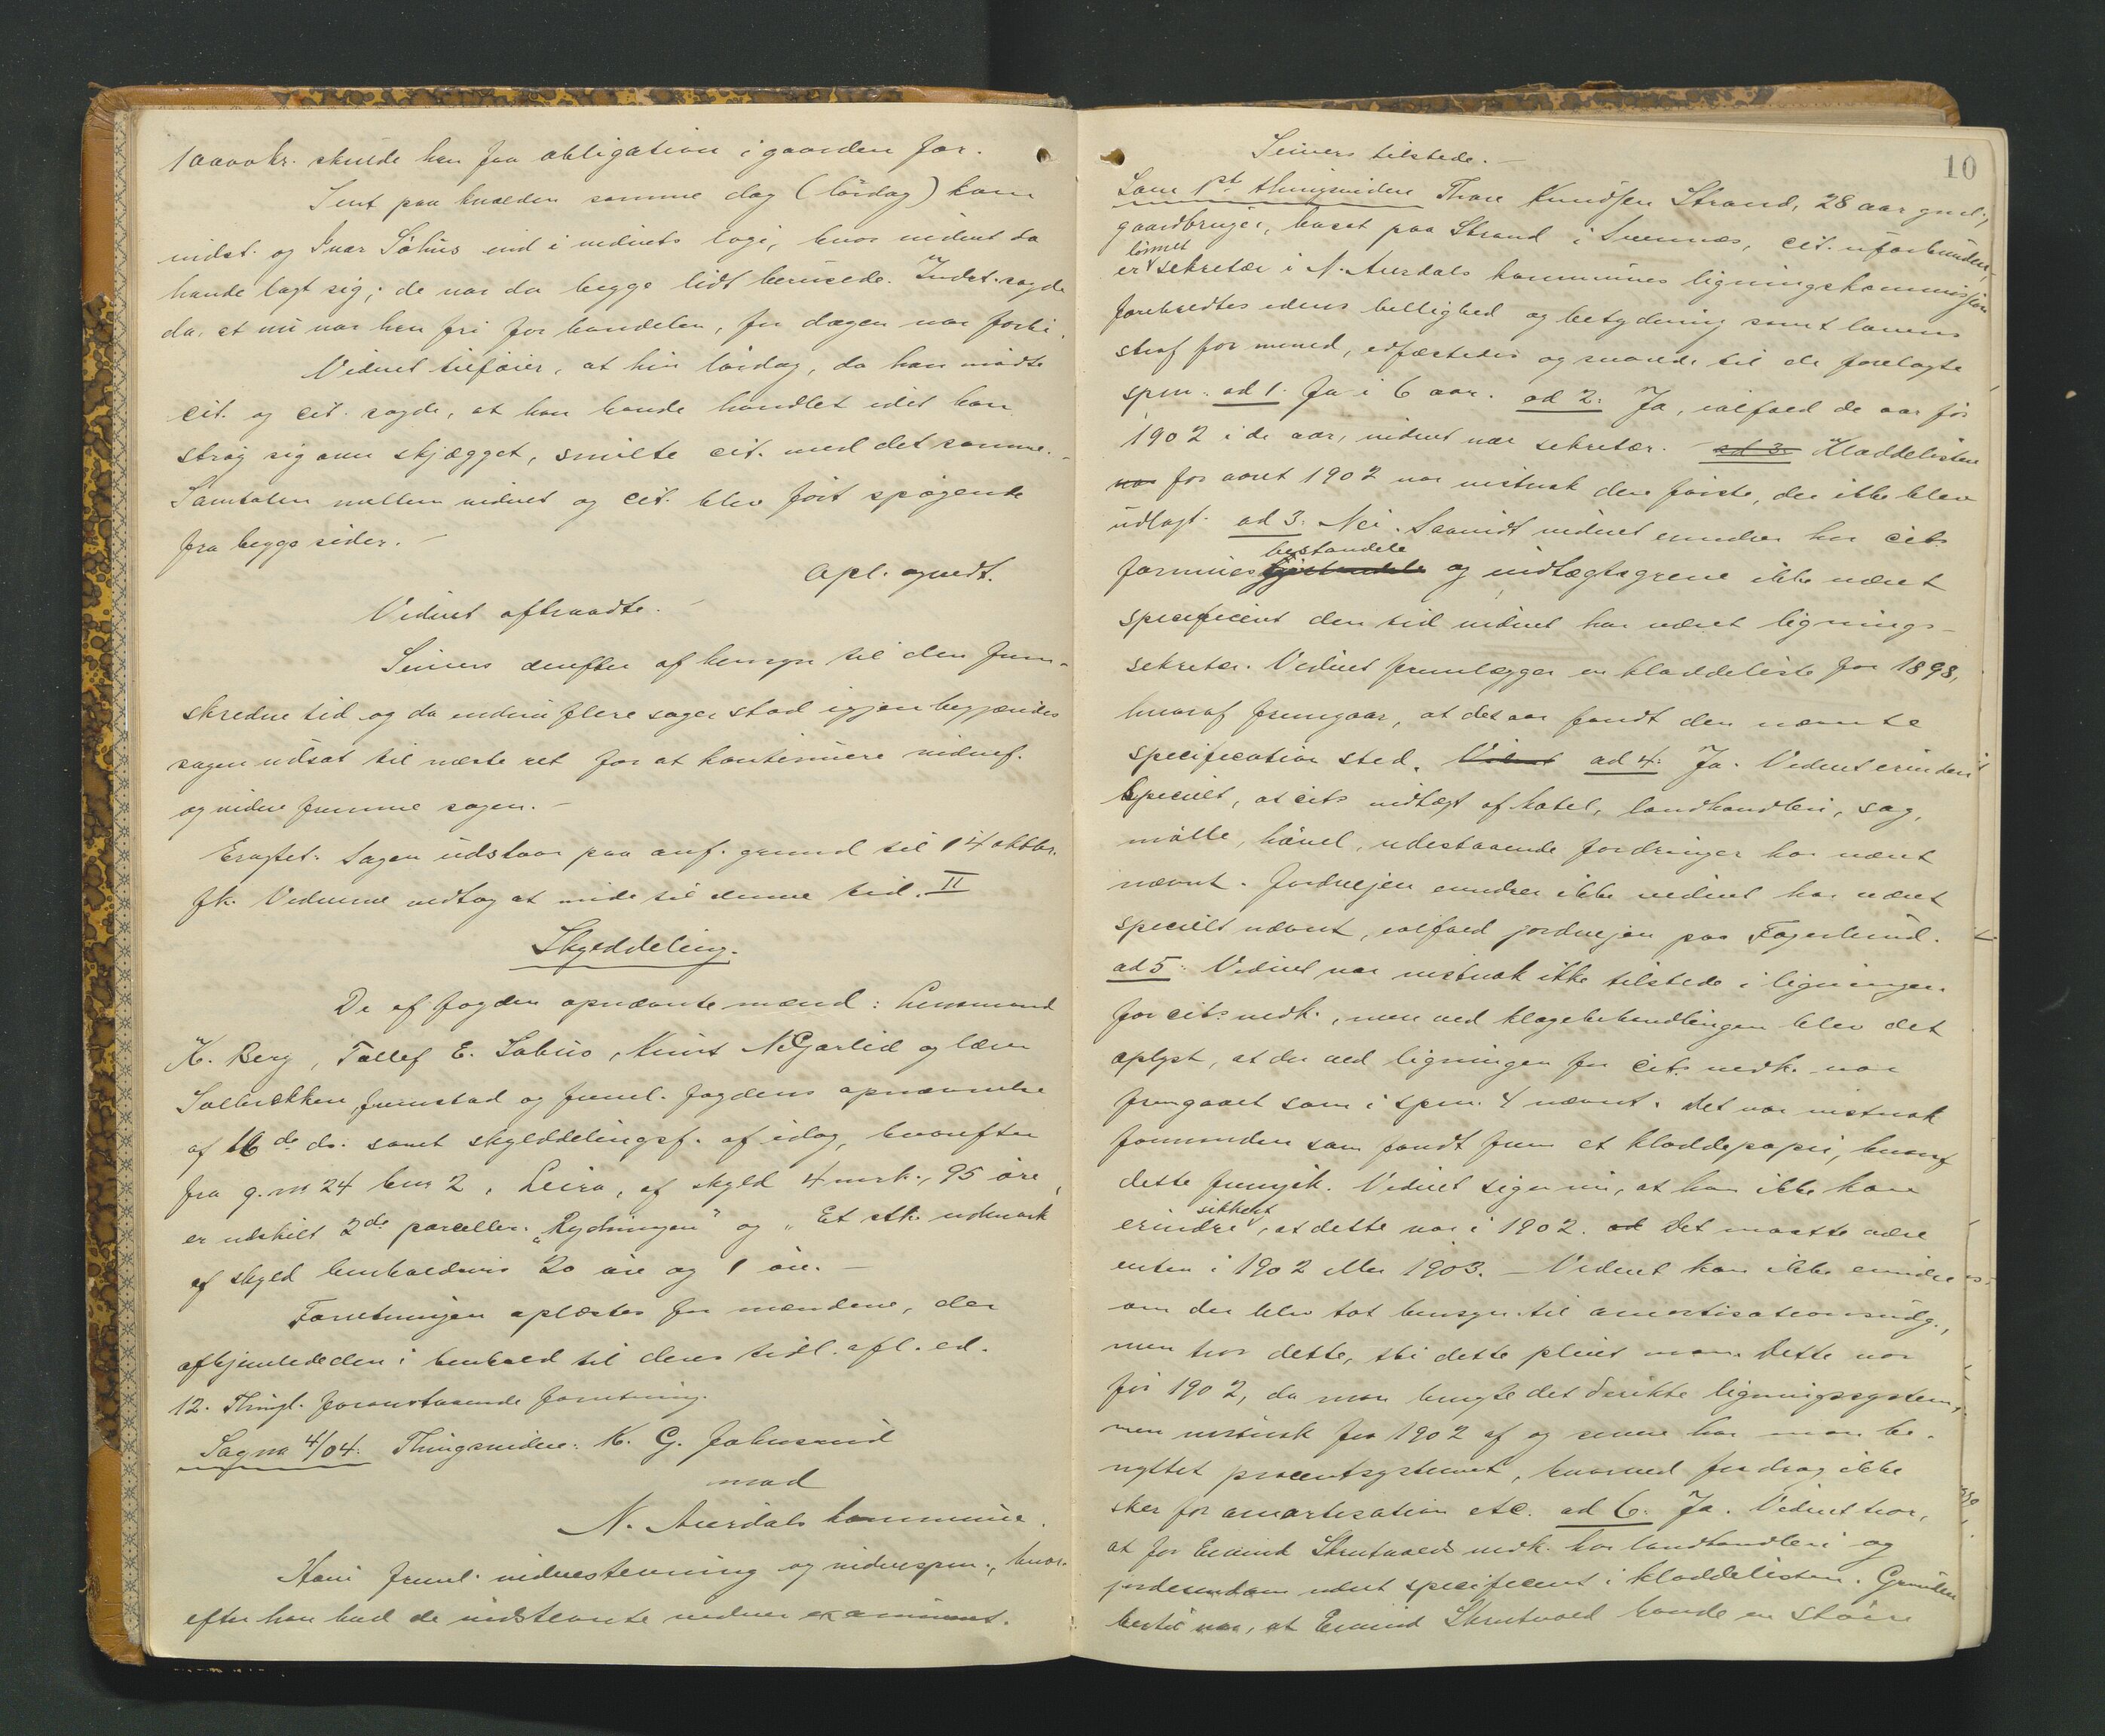 10000kr. skulde han faa obligation i gaarden for.
Sent paa kvælden samme dag (lördag) kom
indst. og Ivar Söhus ind i vidnets logi, hvor vidnet da
havde lagt sig; de var da begge lidt berusede. Indst. sagde
da, at nu var han fri for handelen, for dagen var forbi.
Vidnet tilföier, at hin lördag, da han mödte
cit. og cit. sagde, at han havde handlet idet han
strög sig om skjægget, smilte cit. med det samme.-
Samtalen mellem vidnet og cit. blev fört spögende
fra begge sider.-
Opl. ogvedt.
Vidnet aftraadte.-
Seivers derefter af hensyn til den frem-
skredne tid og da endnu flere sager stod igjen begjærides
sagen udsat til næste ret for at kontinuere vidnef.
og videre fremme sagen.-
Eragtet: Sagen udstaar paa anf. grund til 14 oktbr.
fk. Vidnerne vedtog at möde til denne tid. II
Skylddeling.
De af fogden opnævnte mænd: Lensmand
K. Berg, Tollef E. Sahus, Knut N. Garlid og lærer
Solbrækken fremstod og freml. fogdens opnævnelse
af 16de ds. samt skylddelingsf. af idag, hvorefter
fra g.nr 24 bnr 2, Leira, af skyld 4 mrk., 95 öre,
er udskilt 2de parceller „Rydningen" og „Et stk. udmark
af skyld henholdsvis 20 öre og 1 öre.-
Forretningen oplæstes for mændene, der
afhjemlede den i henhold til deres tidl. afl. ed.
12. Thingl. foranstaaende forretning.
Sag nr 4/04: Thingsvidne: K. G. Johnsrud
mod
N. Aurdals kommune.
Hani freml. vidnestevning og vidnespm., hvor-
efter han bad de indstevnte vidner examineret.
10
Seivers tilstede.-
Som 1ste thingsvidne Thore Knudsen Strand, 28 aar gml.,
gaardbruger, bosat paa Strand i Svennes, cit. uforbunden,
lönnet
er sekretær i N. Aurdals kommunes ligningskommission
foreholdtes edens hellighed og betydning samt lovens
straf for mened, edfæstedes og svarede til de forelagte
spm. ad 1. Ja i 6 aar. ad 2: Ja, ialfald de aar för
1902 i de aar, vidnet var sekretær. - ad 3: Kladdelisten
var for aaret 1902 var vistnok den förste, der ikke blev
udlagt. ad 3: Nei. Saavidt vidnet erindrer har cits
bestandele
formues og indtægtsgrene ikke været
specificeret den tid vidnet har været lignings-
sekretær. Vidnet fremlægger en kladdeliste for 1898,
hvoraf fremgaar, at det aar fandt den nævnte
specification sted. Vidnet ad 4: Ja. Vidnet erindrer
specielt, at cits indtægt af hotel, landhandleri, sag,
mölle, hövel, udestaaende fordringer har været
nævnt. Jordvejen erindrer ikke vidnet har været
specielt nævnt, ialfald jordvejen paa Fagerlund.
ad 5: Vidnet var vistnok ikke tilstede i ligningen
for cits vedk., men ved klagebehandlingen blev det
oplyst, at der ved ligningen for cits vedk. var
fremgaaet som i spm. 4 nævnt. Det var vistnok
formanden som fandt frem et kladdepapir, hvoraf
dette fremgik. Vidnet siger nu, at han ikke kan
sikkert
erindre, at dette var i 1902. ad Det maatte være
enten i 1902 eller 1903. - Vidnet kan ikke erindre
om der blev tat hensyn til amortisationsudg.,
men tror dette, thi dette pleiet man. Dette var
för 1902, da man brugte det direkte ligningssystem,
men vistnok fra 1902 af og senere har man be-
nyttet procentsystemet, hvorved fradrag ikke
sker for amortisation etc. ad 6: Ja. Vidnet tror,
at for Eivind Skrutvolds vedk. har landhandleri og
jordeiendom været specificeret i kladdelisten. Grunden
hertil var, at Eivind Skrutvold havde en större